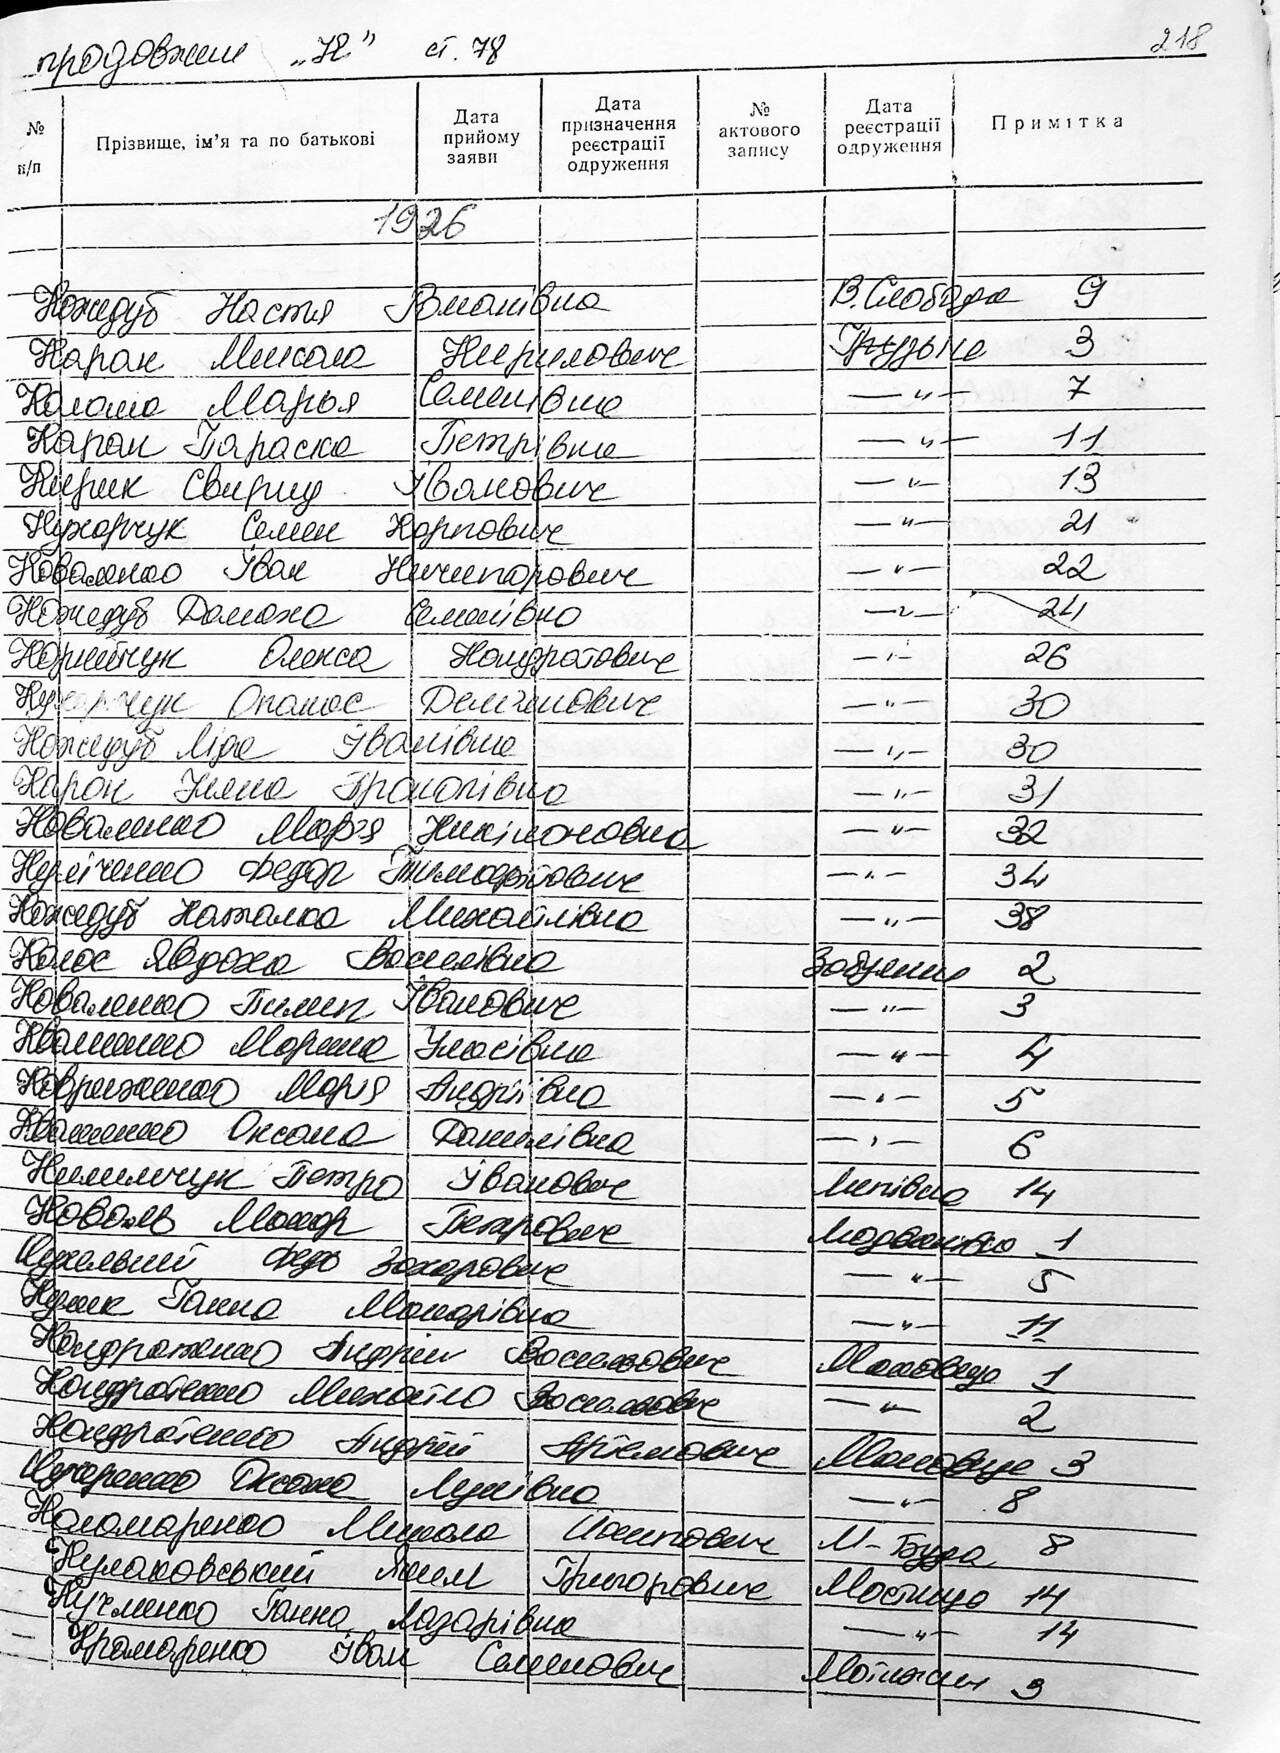 продовжен „К” ст. 78 218
№ н/п Прізвище, ім'я та по батькові Дата прийому заяви Дата призначення реєстрації одруження № актового запису Дата реєстрації одруження Примітка
1926
Кожедуб Настя Романівна В. Слобода 9
Каран Микола Кирилович Грузьке 3
Марья Семенівна —"— 7
Каран Параска Петрівна —"— 11
Кирик Свирид Іванович —"— 13
Кухарчук Семен Карпович —"— 21
Коваленко Іван Ничипорович —"— 22
Кожедуб Домаха Семенівна —"— 24
Корнійчук Олекса Кондратович —"— 26
Кухарчук Опанас Демянович —"— 30
Кожедуб Ліда Іванівна —"— 30
Каран Уляна Прокопівна —"— 31
Коваленко Мар'я —"— 32
Федор Тимофійович —"— 34
Кожедуб Наталка Михайлівна —"— 38
Колос Явдоха Василівна Забуяння 2
Коваленко Пилип Іванович —"— 3
Квашенко Марина Уласівна —"— 4
Ковриженко Марія Андріївна —"— 5
Квашенко Оксана Данилівна —"— 6
Климчук Петро Іванович Липівка 14
Коваль Макар Петрович 1
Федь Захарович —"— 5
Ганна Макарівна —"— 11
Кондратенко Андрій Васильович Маковище 1
Кондратенко Михайло Васильович —"— 2
Кондратенко Андрій Артемович Маковище 3
Кухаренко Оксана Луківна —"— 8
Коломаренко Микола Йосипович М-Буда 8
Кулаковський Яким Григорович Мостище 14
Кучменко Ганна Лазарівна —"— 14
Крамаренко Іван Семенович Мотижин 3